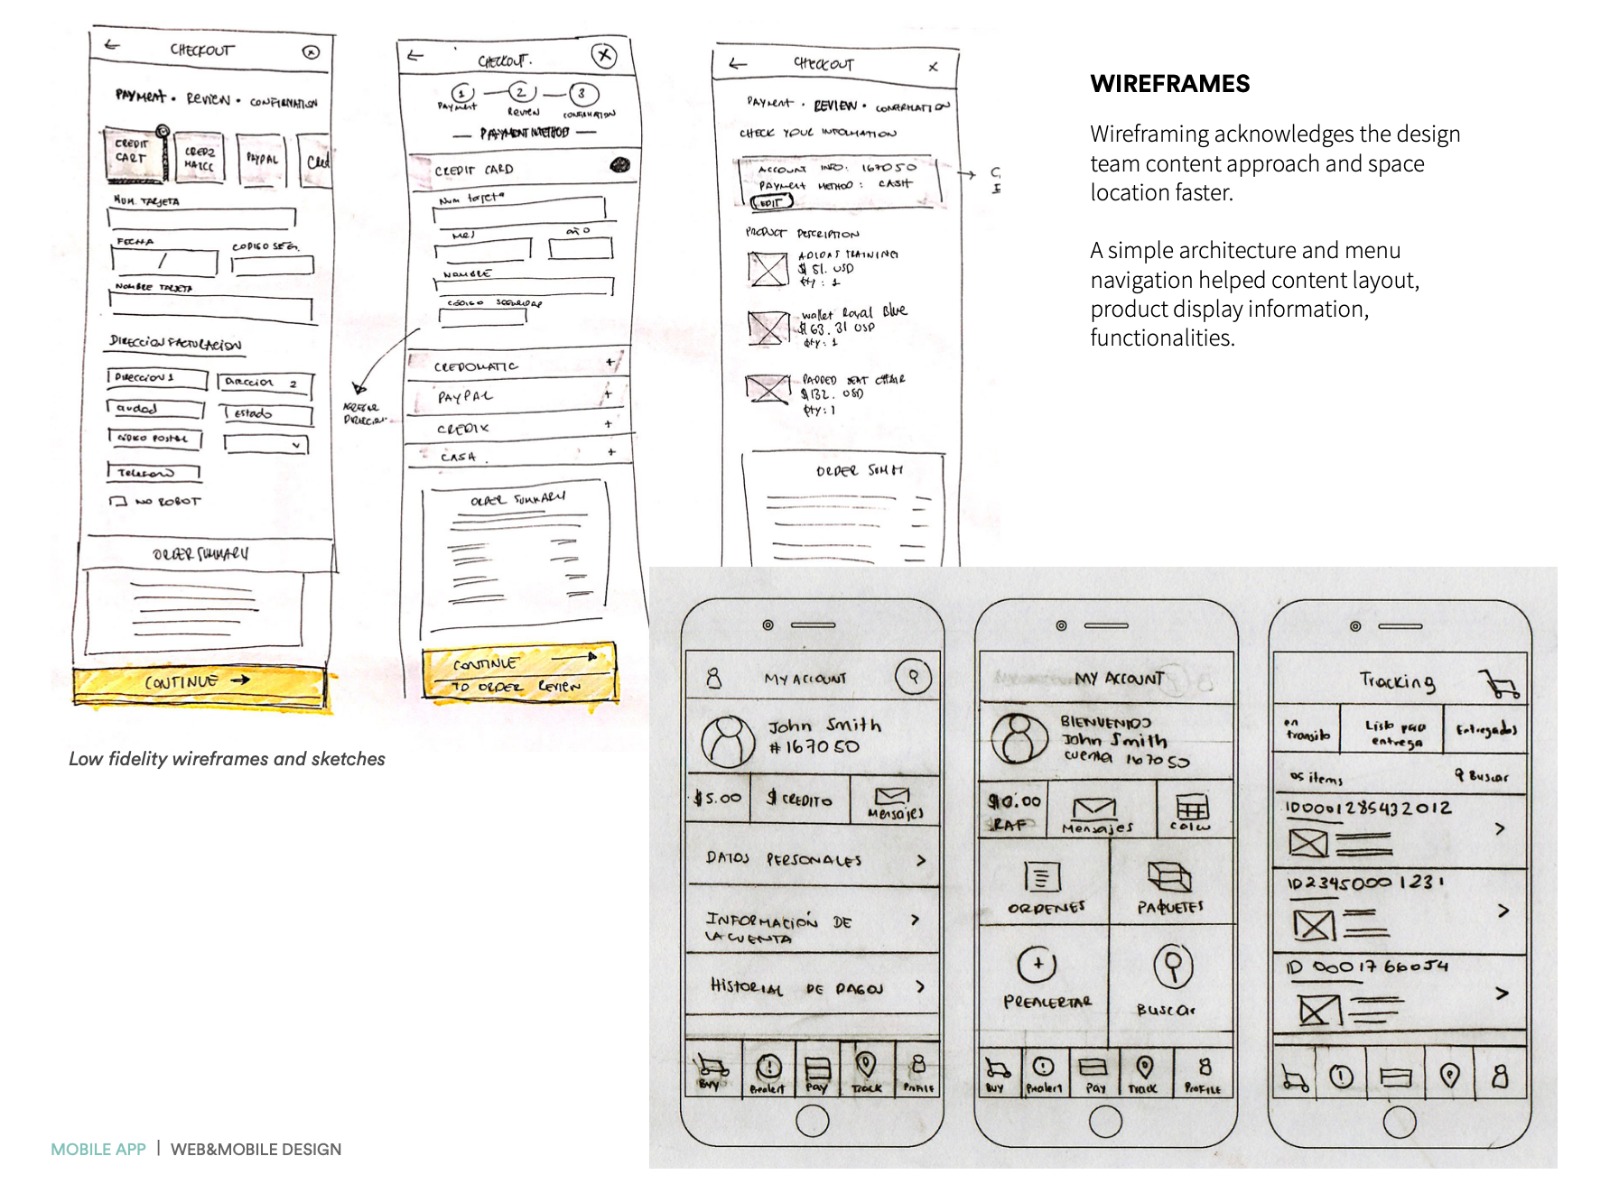 CHECKOUT
PAYMENT • REVIEW • CONFIRMATION
CREDIT
CART
PAYPAL
NUM. TARJETA
FECHA
/
CODIGO SEG.
NOMBRE TARJETA
DIRECCION FACTURACION
DIRECCION 1
DIRECCION 2
CIUDAD
ESTADO
CODIGO POSTAL
TELEFONO
NO ROBOT
ORDER SUMMARY
CONTINUE →
CHECKOUT.
1
2
3
PAYMENT
REVIEW
CONFIRMATION
PAYMENT METHOD
CREDIT CARD
Num tarjeta
MES
AÑO
NOMBRE
CODIGO SEGURIDAD
CREDOMATIC +
PAYPAL +
CREDIX +
CASH. +
ORDER SUMMARY
CONTINUE →
TO ORDER REVIEW
CHECKOUT
PAYMENT • REVIEW • CONFIRMATION
CHECK YOUR INFORMATION
ACCOUNT INFO: 167050
PAYMENT METHOD: CASH
EDIT
PRODUCT DESCRIPTION
ADIDAS TRAINING
$ 51. USD
Qty: 1
wallet Royal Blue
$ 63.31 USD
Qty: 1
PADDED SEAT CHAIR
$132. USD
Qty: 1
ORDER SUMM
WIREFRAMES
Wireframing acknowledges the design
team content approach and space
location faster.
A simple architecture and menu
navigation helped content layout,
product display information,
functionalities.
Low fidelity wireframes and sketches
MY ACCOUNT
John Smith
#167050
$5.00
$ CREDITO
Mensajes
DATOS PERSONALES
INFORMACIÓN DE
LA CUENTA
HISTORIAL DE PAGOS
BUY
Prealert
Pay
TRACK
PROFILE
MY ACCOUNT
BIENVENIDO
John Smith
cuenta 167050
$0.00
RAF
Mensajes
ORDENES
PAQUETES
PREALERTAR
Buscar
BUY
Prealert
Pay
Track
PROFILE
Tracking
en
transito
Listo para
entrega
Entregados
05 items
Buscar
ID0001285432012
ID23450001231
ID 0001766054
MOBILE APP | WEB&MOBILE DESIGN